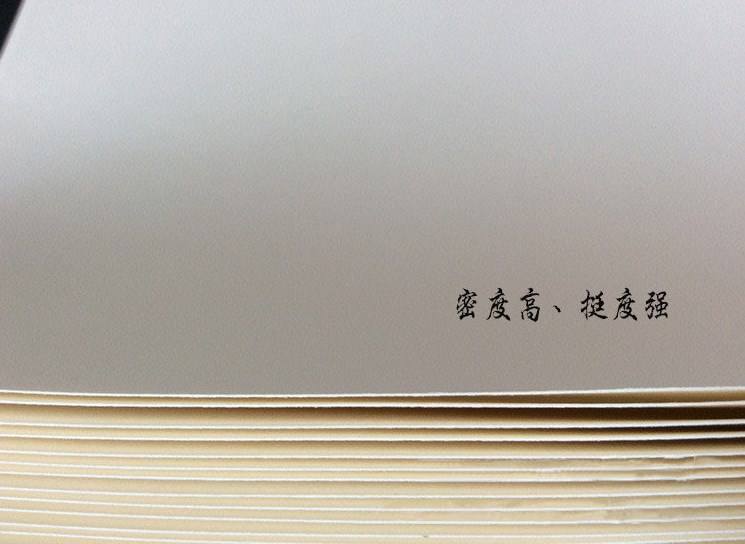 密度高、挺度强